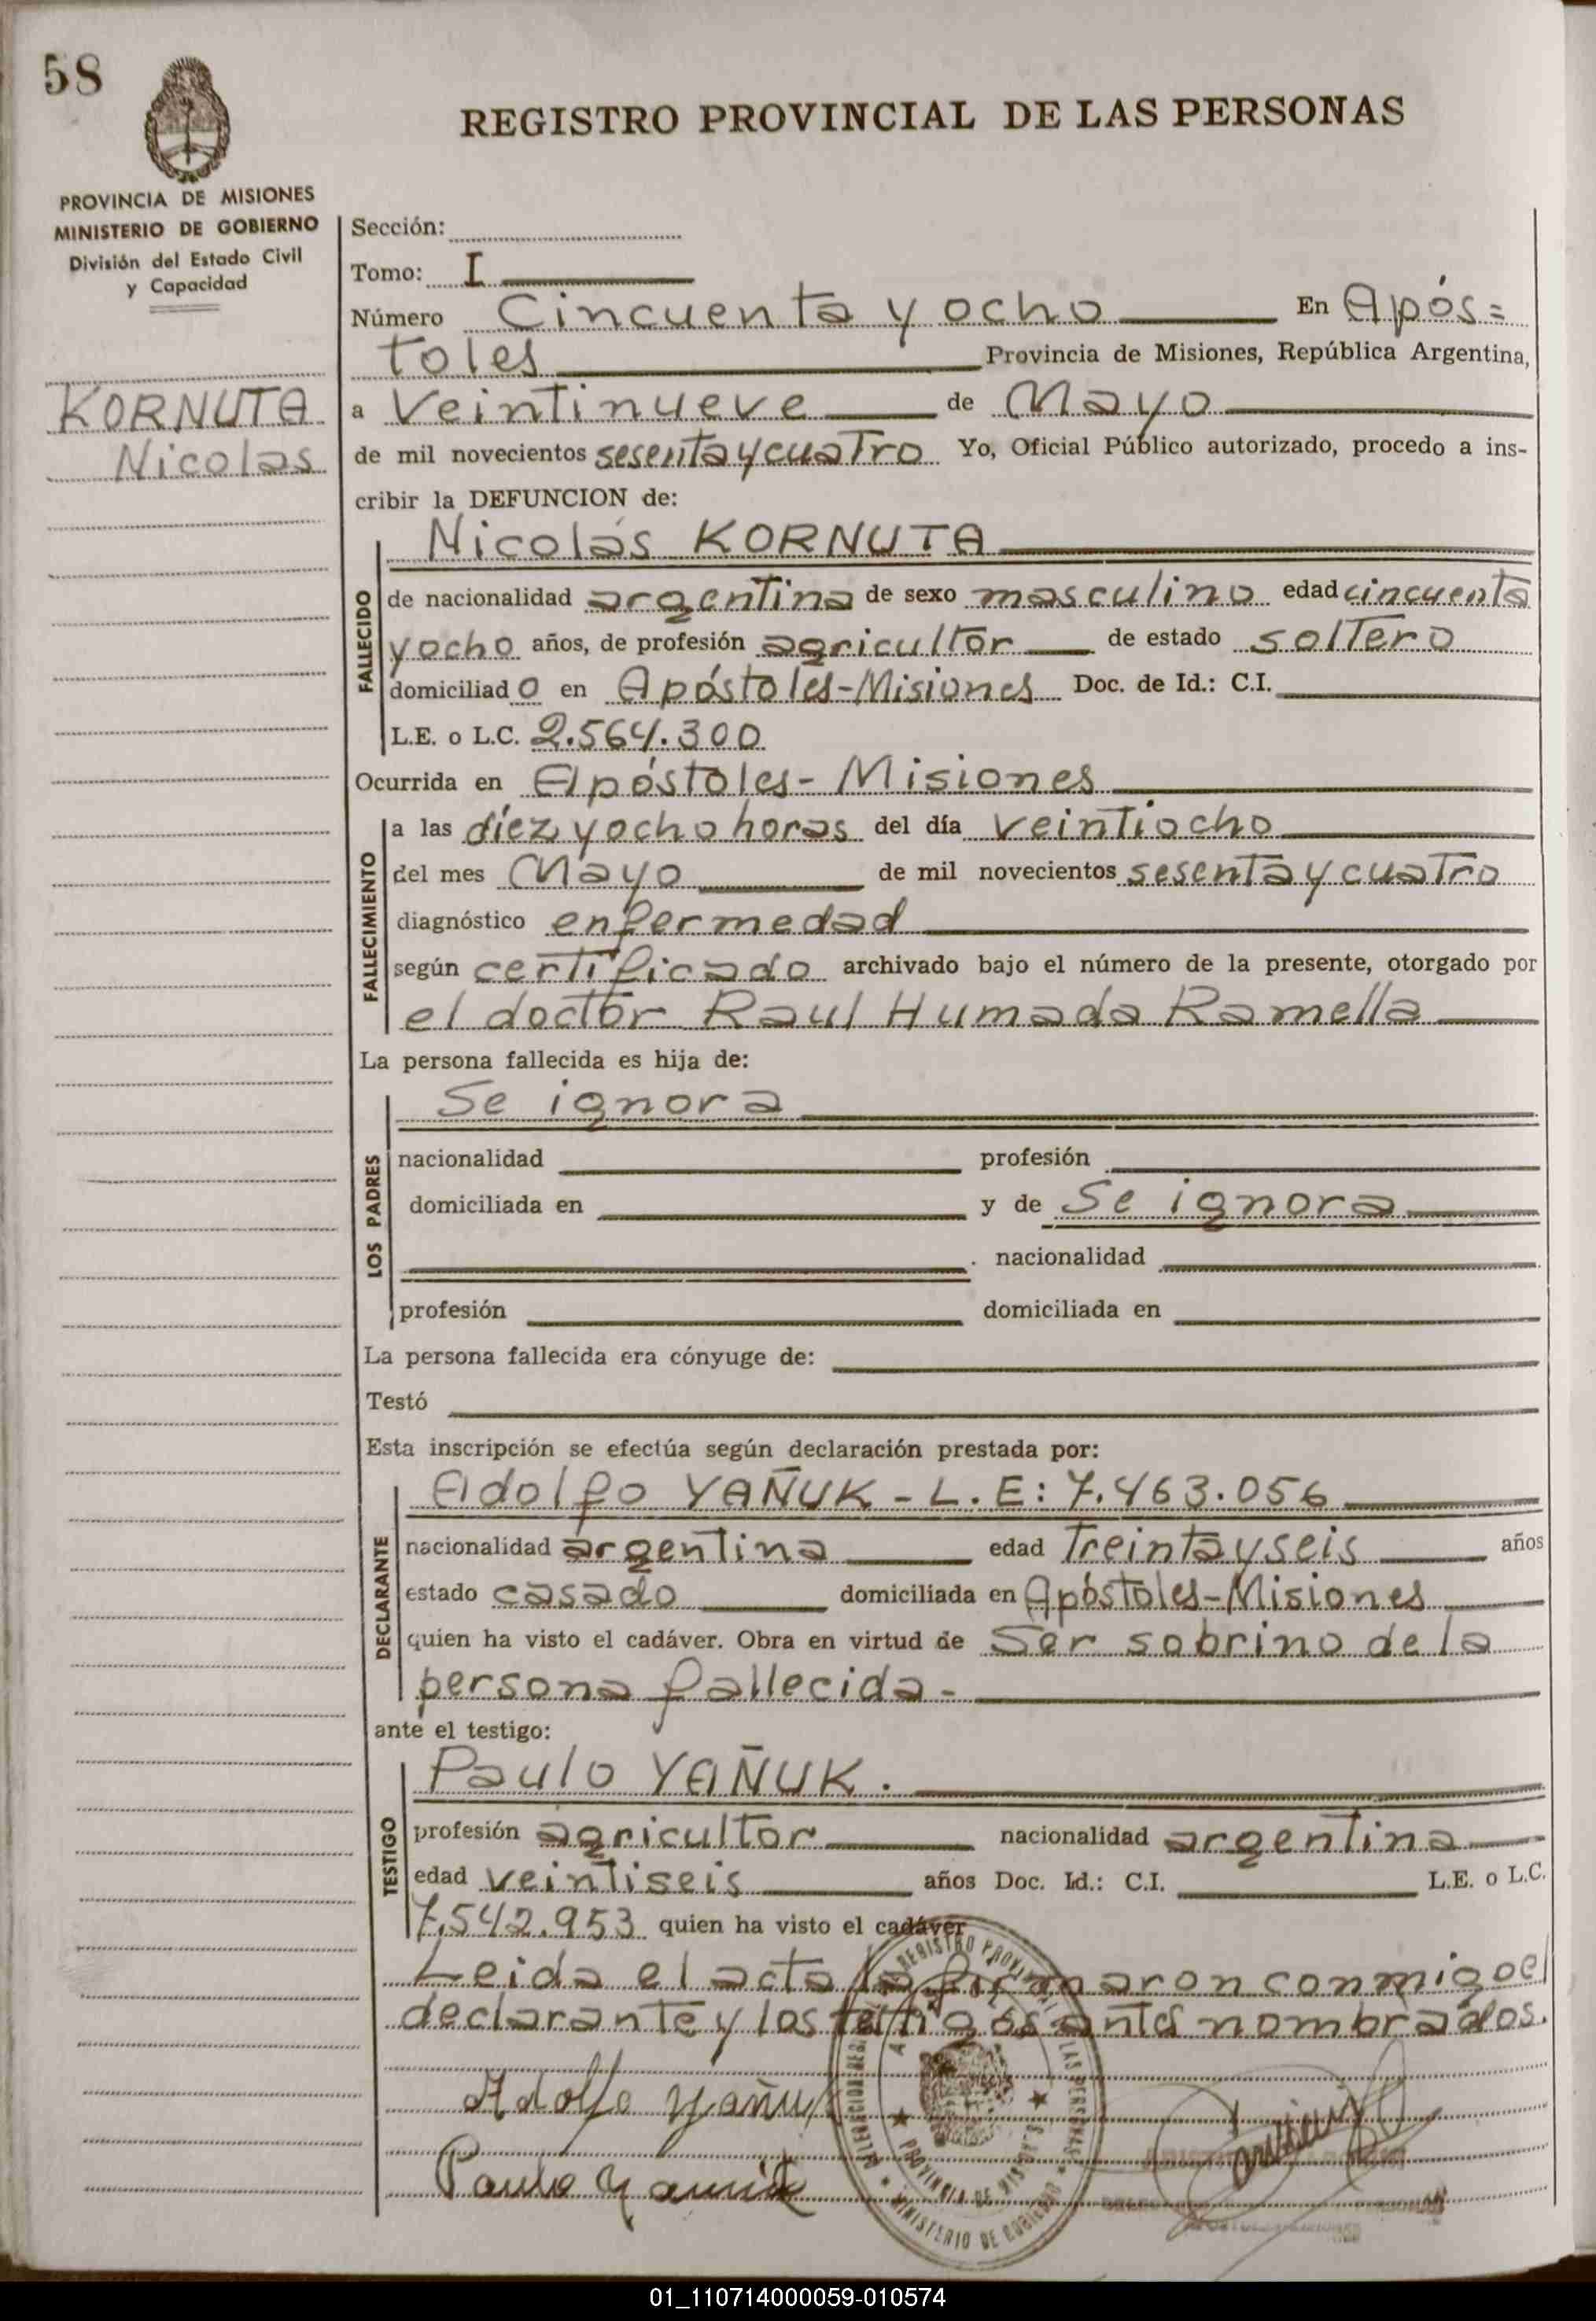 58
REGISTRO PROVINCIAL DE LAS PERSONAS
PROVINCIA DE MISIONES
MINISTERIO DE GOBIERNO
División del Estado Civil
y Capacidad
KORNUTA
Nicolas
Sección:
Tomo: I
Número Cincuenta y ocho En Após=
toles Provincia de Misiones, República Argentina,
a Veintinueve de Mayo
de mil novecientos sesenta y cuatro Yo, Oficial Público autorizado, procedo a ins-
cribir la DEFUNCION de:
FALLECIDO
Nicolás KORNUTA
de nacionalidad argentina de sexo masculino edad cincuenta
y ocho años, de profesión agricultor de estado soltero
domiciliado en Apóstoles-Misiones Doc. de Id.: C.I.
L.E. o L.C. 2.564.300
Ocurrida en Apóstoles- Misiones
FALLECIMIENTO
a las diez y ocho horas del día veintiocho
del mes Mayo de mil novecientos sesenta y cuatro
diagnóstico enfermedad
según certificado archivado bajo el número de la presente, otorgado por
el doctor Raul Humada Ramella
La persona fallecida es hija de:
LOS PADRES
Se ignora
nacionalidad profesión
domiciliada en y de Se ignora
nacionalidad
profesión domiciliada en
La persona fallecida era cónyuge de:
Testó
Esta inscripción se efectúa según declaración prestada por:
DECLARANTE
Adolfo YAÑUK - L.E: 7.463.056
nacionalidad argentina edad Treinta y seis años
estado casado domiciliada en Apóstoles-Misiones
quien ha visto el cadáver. Obra en virtud de Ser sobrino de la
persona fallecida-
ante el testigo:
TESTIGO
Paulo YAÑUK.
profesión agricultor nacionalidad argentina
edad veintiseis años Doc. Id.: C.I. L.E. o L.C.
7.542.953 quien ha visto el cadáver
Leida el acta la firmaron conmigo el
declarante y los testigos antes nombrados.
Adolfo Yañuk
Paulo Yañuk
REGISTRO PROVINCIAL DE LAS PERSONAS
PROVINCIA DE MISIONES
MINISTERIO DE GOBIERNO
01_110714000059-010574